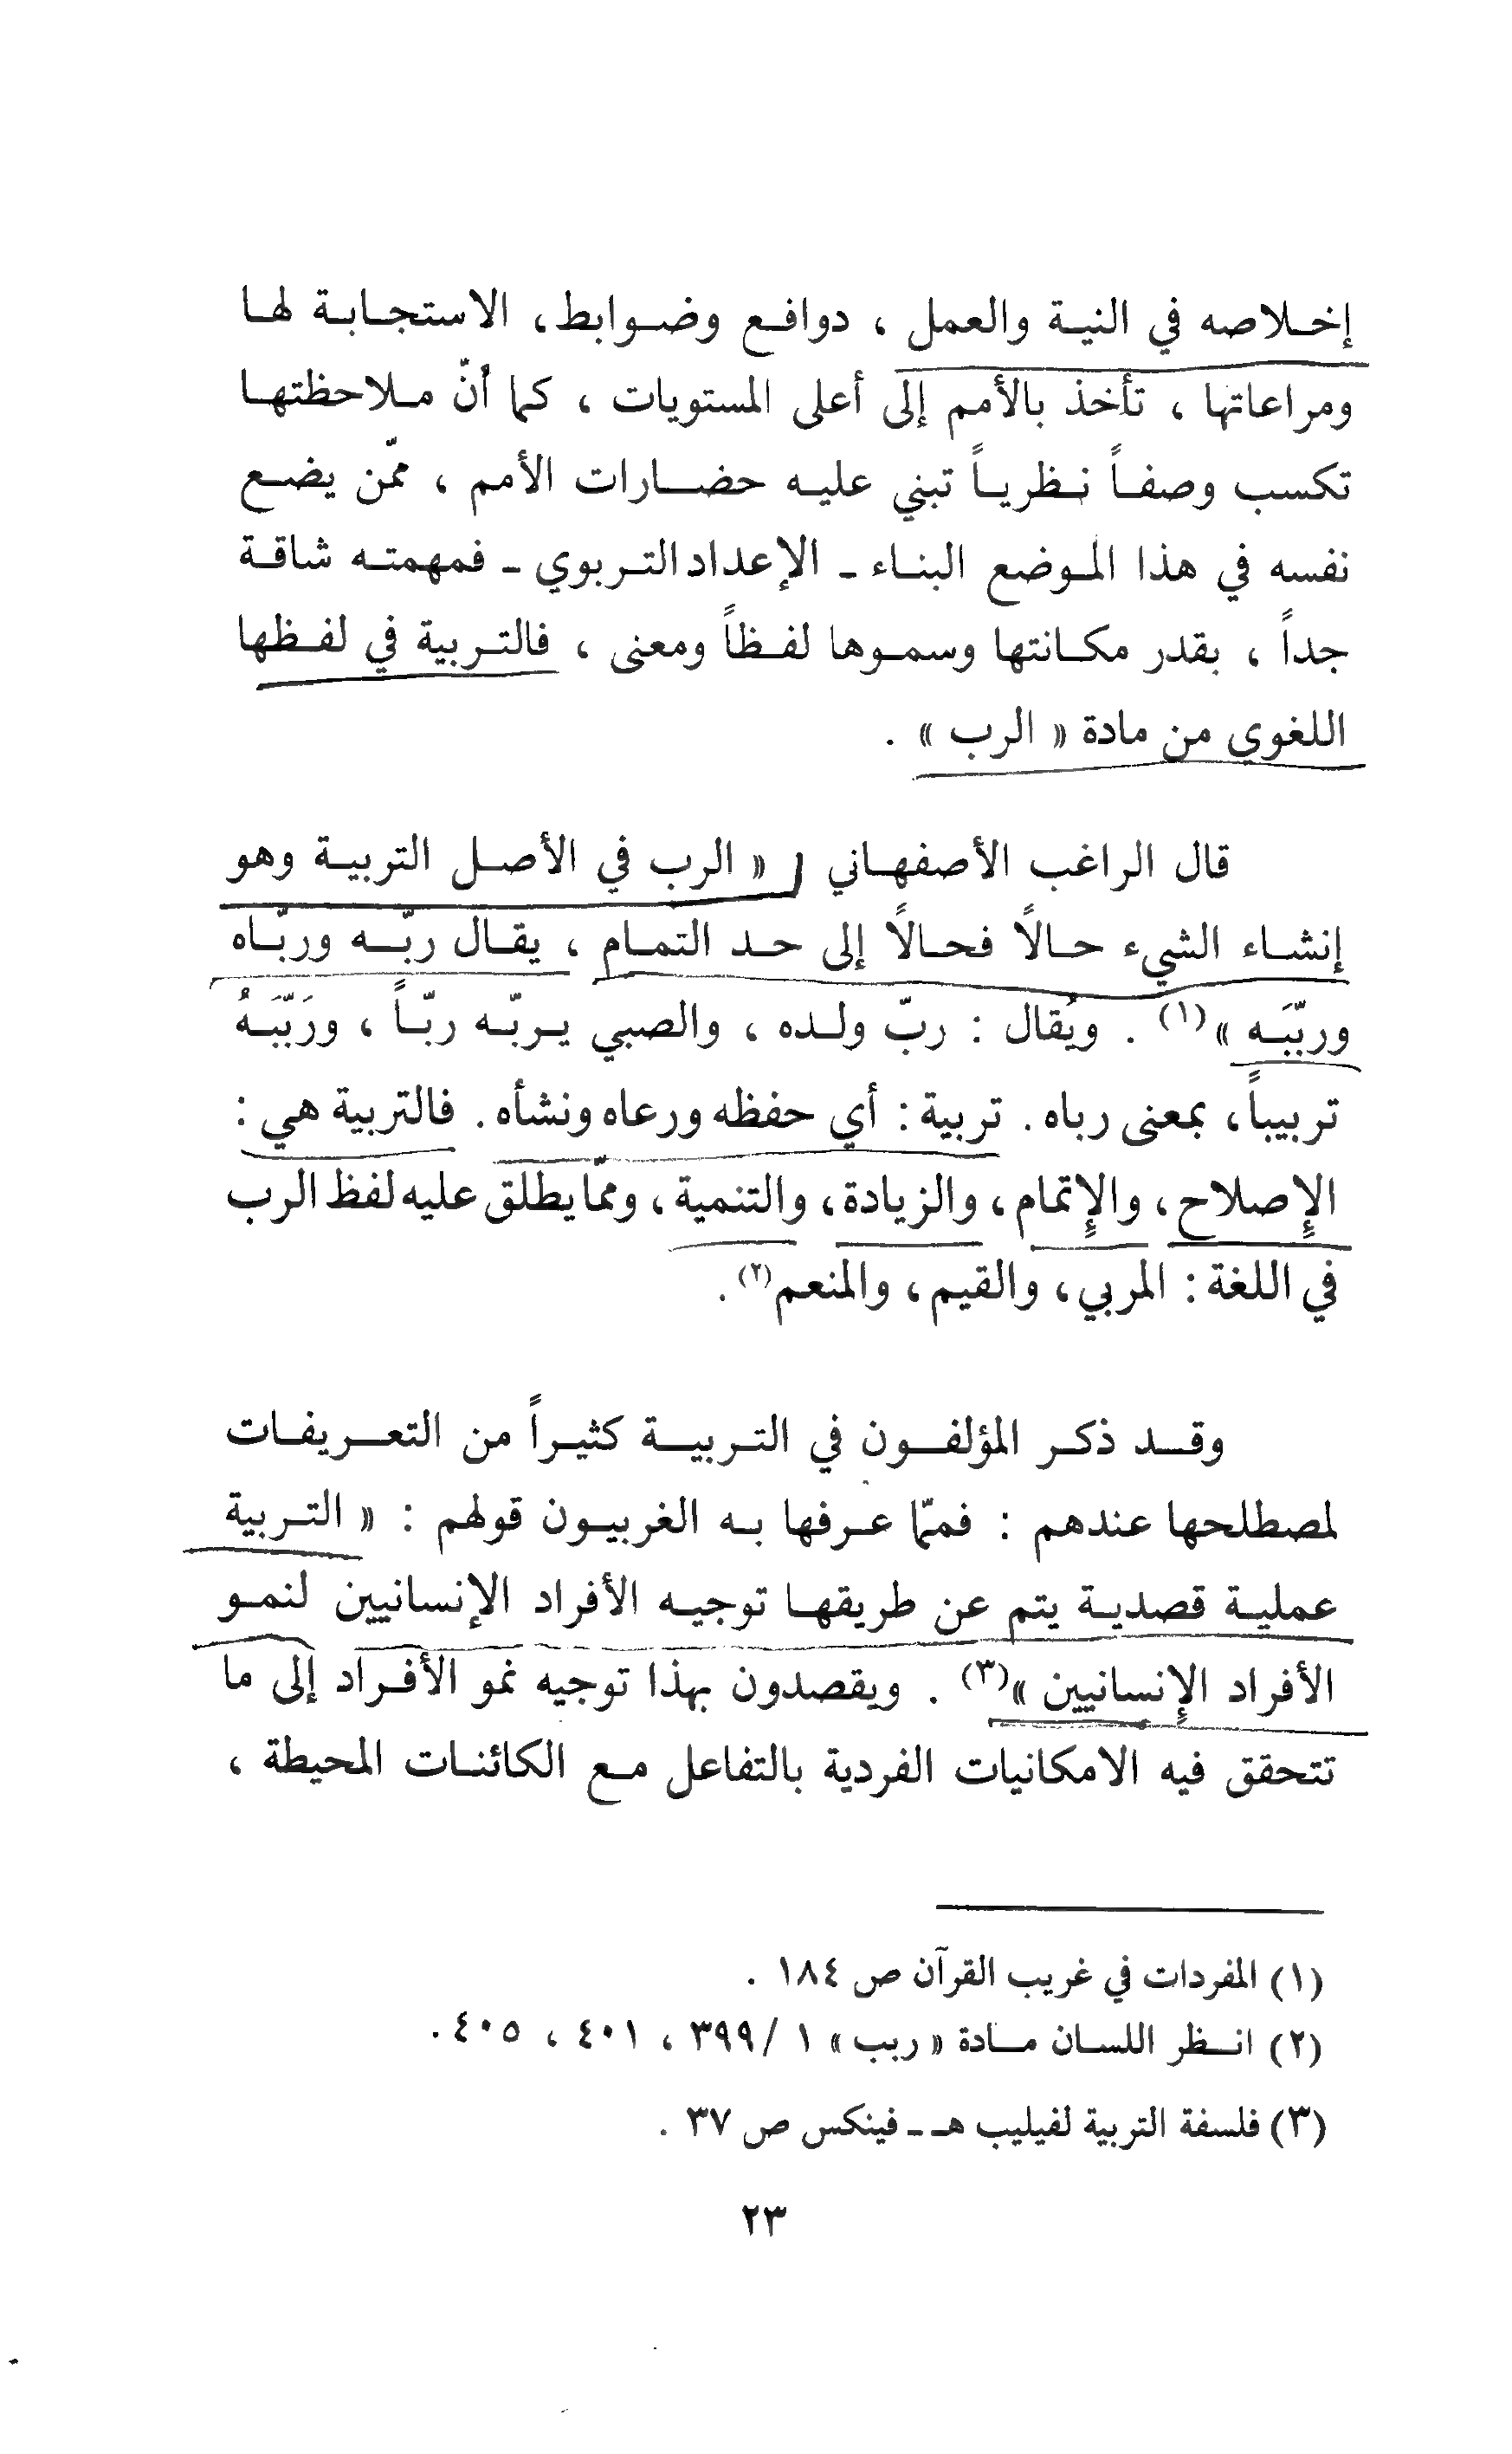 إخلاصه في النية والعمل ، دوافع وضوابط، الاستجابة لها
ومراعاتها ، تأخذ بالأمم إلى أعلى المستويات ، كما أنّ ملاحظتها
تكسب وصفاً نظرياً تبني عليه حضارات الأمم ، ممّن يضع
نفسه في هذا الموضع البناء - الإعداد التربوي - فمهمته شاقة
جداً ، بقدر مكانتها وسموها لفظاً ومعنى ، فالتربية في لفظها
اللغوي من مادة « الرب » .
قال الراغب الأصفهاني « الرب في الأصل التربية وهو
إنشاء الشيء حالًا فحالًا إلى حد التمام ، يقال ربّه وربّاه
وربّبَه »(١) . ويُقال : ربّ ولده ، والصبي يربّه ربّاً ، ورَبّبَهُ
تربيباً، بمعنى رباه . تربية : أي حفظه ورعاه ونشأه . فالتربية هي :
الإصلاح، والإتمام، والزيادة، والتنمية، وممّا يطلق عليه لفظ الرب
في اللغة : المربي، والقيم، والمنعم(٢) .
وقد ذكر المؤلفون في التربية كثيراً من التعريفات
لمصطلحها عندهم : فممّا عرفها به الغربيون قولهم : « التربية
عملية قصدية يتم عن طريقها توجيه الأفراد الإنسانيين لنمو
الأفراد الإنسانيين »(٣) . ويقصدون بهذا توجيه نمو الأفراد إلى ما
تتحقق فيه الامكانيات الفردية بالتفاعل مع الكائنات المحيطة ،
(١) المفردات في غريب القرآن ص ١٨٤ .
(٢) انظر اللسان مادة « ربب » ١ /٣٩٩ ، ٤٠١ ، ٤٠٥ .
(٣) فلسفة التربية لفيليب هـ - فينكس ص ٣٧ .
٢٣